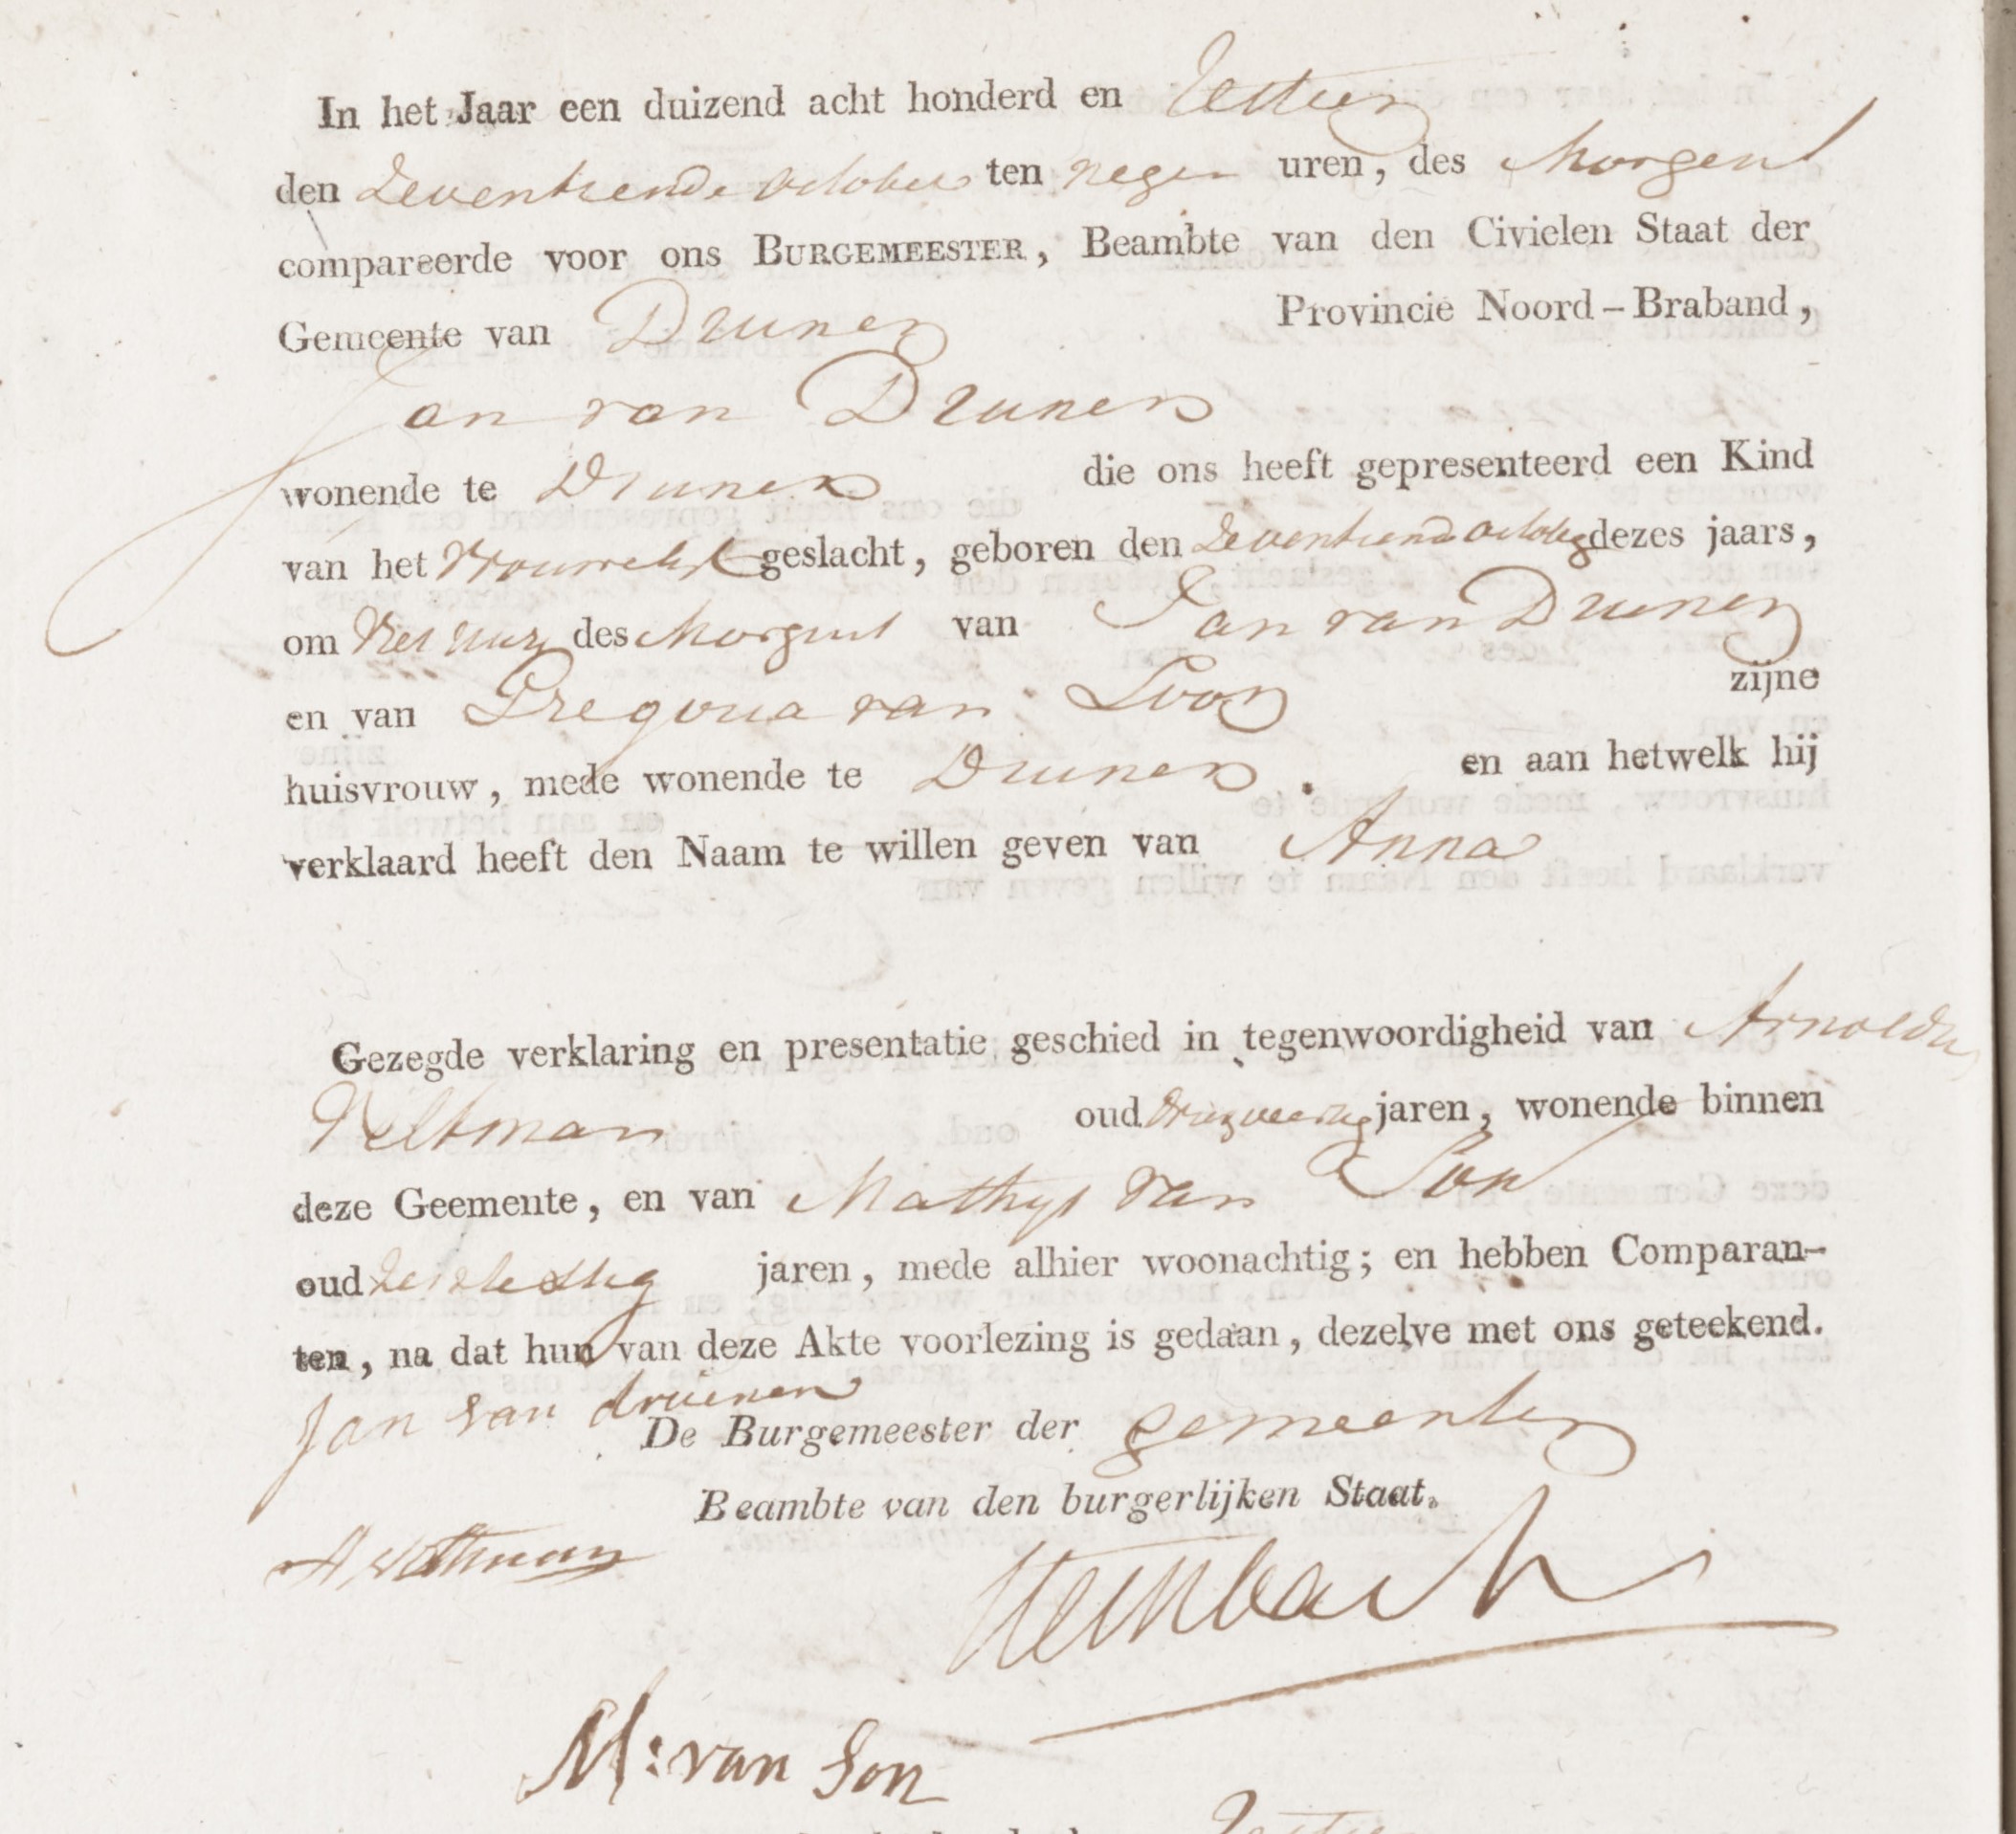 In het Jaar een duizend acht honderd en Zestien
den Zeventiende october ten negen uren, des Morgens
compareerde voor ons BURGEMEESTER, Beambte van den Civielen Staat der
Gemeente van Drunen Provincie Noord-Braband,
Jan van Drunen
wonende te Drunen die ons heeft gepresenteerd een Kind
van het Vrouwelyk geslacht, geboren den Zeventiende october dezes jaars,
om vier uuren des Morgens van Jan van Drunen
en van Gregoria van Loon zijne
huisvrouw, mede wonende te Drunen. en aan hetwelk hij
verklaard heeft den Naam te willen geven van Anna
Gezegde verklaring en presentatie geschied in tegenwoordigheid van Arnoldus
Veltman oud jaren, wonende binnen
deze Geemente, en van Mathys van Son
oud jaren, mede alhier woonachtig; en hebben Comparan-
ten, na dat hun van deze Akte voorlezing is gedaan, dezelve met ons geteekend.
Jan van druenen
De Burgemeester der gemeenten
Beambte van den burgerlijken Staat.
M: van Son